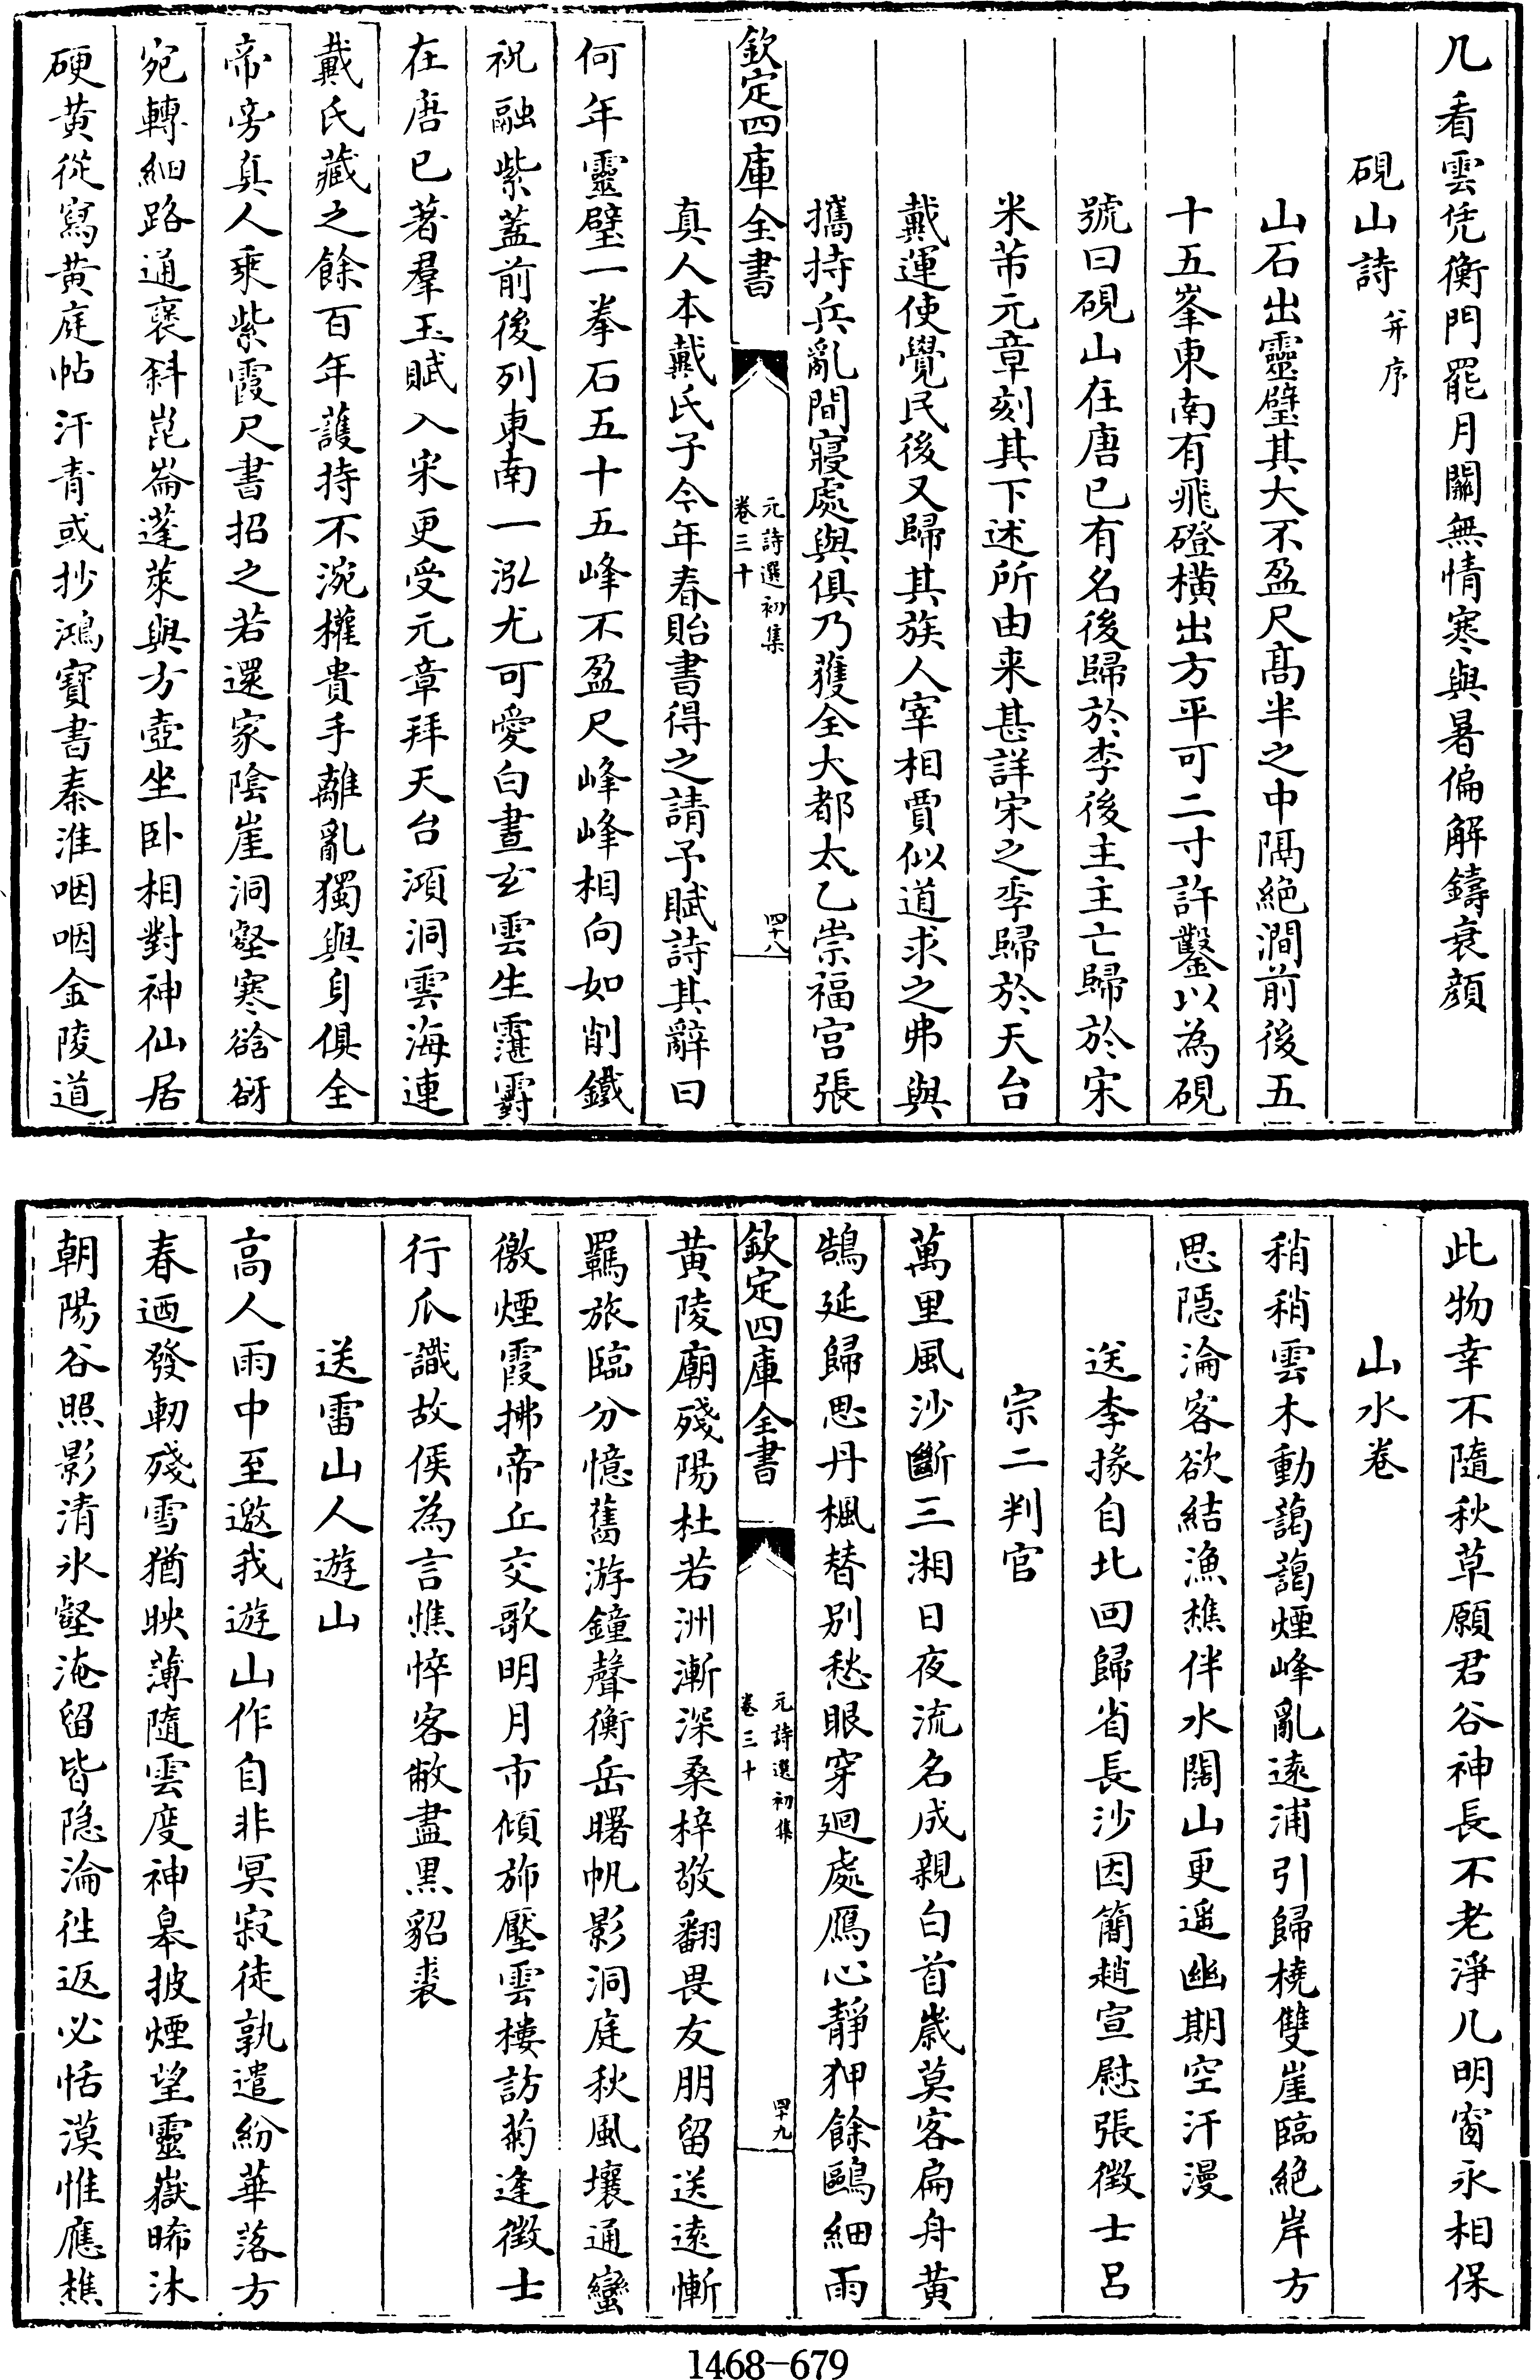 几看雲凭衡門罷月關無情寒與暑偏解鑄衰顔
硯山詩 并序
山石出靈璧其大不盈尺高半之中隔絶澗前後五
十五峯東南有飛磴橫出方平可二寸許鑿以為硯
號曰硯山在唐已有名後歸於李後主主亡歸於宋
米芾元章刻其下述所由来甚詳宋之季歸於天台
戴運使覺民後又歸其族人宰相賈似道求之弗與
攜持兵亂間寢處與俱乃獲全大都太乙崇福宮張
欽定四庫全書
元詩選初集
卷三十
四十八
真人本戴氏子今年春貽書得之請予賦詩其辭曰
何年靈璧一拳石五十五峰不盈尺峰峰相向如削鐵
祝融紫蓋前後列東南一泓尤可愛白晝玄雲生霮䨴
在唐已著羣玉賦入宋更受元章拜天台澒洞雲海連
戴氏藏之餘百年護持不涴權貴手離亂獨與身俱全
帝旁真人乘紫霞尺書招之若還家陰崖洞壑寒谽谺
宛轉細路通褒斜崑崙蓬萊與方壺坐卧相對神仙居
硬黃從寫黃庭帖汗青或抄鴻寶書秦淮咽咽金陵道
此物幸不隨秋草願君谷神長不老淨几明窗永相保
山水卷
稍稍雲木動藹藹煙峰亂遠浦引歸橈雙崖臨絶岸方
思隱淪客欲結漁樵伴水闊山更遥幽期空汗漫
送李掾自北回歸省長沙因簡趙宣慰張徵士呂
宗二判官
萬里風沙斷三湘日夜流名成親白首歲莫客扁舟黄
鵠延歸思丹楓替别愁眼穿廻處鴈心靜狎餘鷗細雨
欽定四庫全書
元詩選初集
卷三十
四十九
黄陵廟殘陽杜若洲漸深桑梓敬翻畏友朋留送遠慚
羈旅臨分憶舊游鐘聲衡岳曙帆影洞庭秋風壤通蠻
徼煙霞拂帝丘交歌明月市傾斾壓雲樓訪菊逢徵士
行瓜識故侯為言憔悴客敝盡黑貂裘
送雷山人遊山
高人雨中至邀我遊山作自非冥寂徒孰遣紛華落方
春迺發軔殘雪猶映薄隨雲度神皋披煙望靈嶽晞沐
朝陽谷照影清氷壑淹留皆隐淪徃返必恬漠惟應樵
1468-679